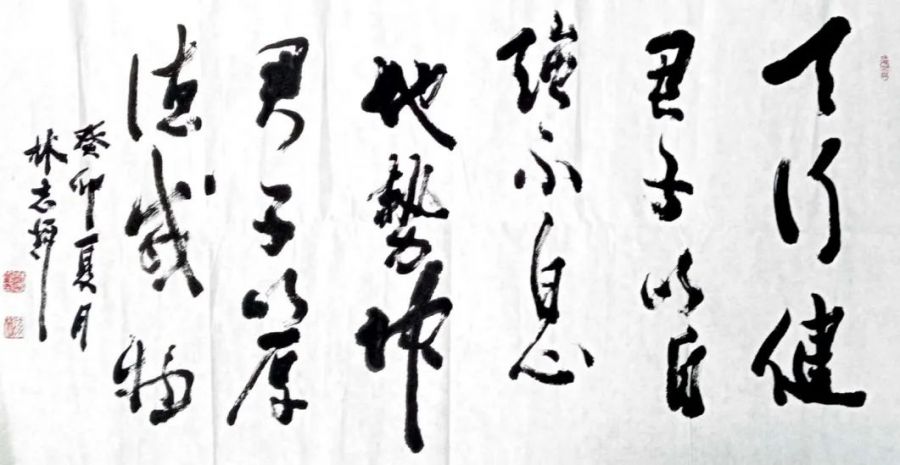 天行健
君子以自
強不息
地勢坤
君子以厚
德載物
癸卯夏月
林志輝